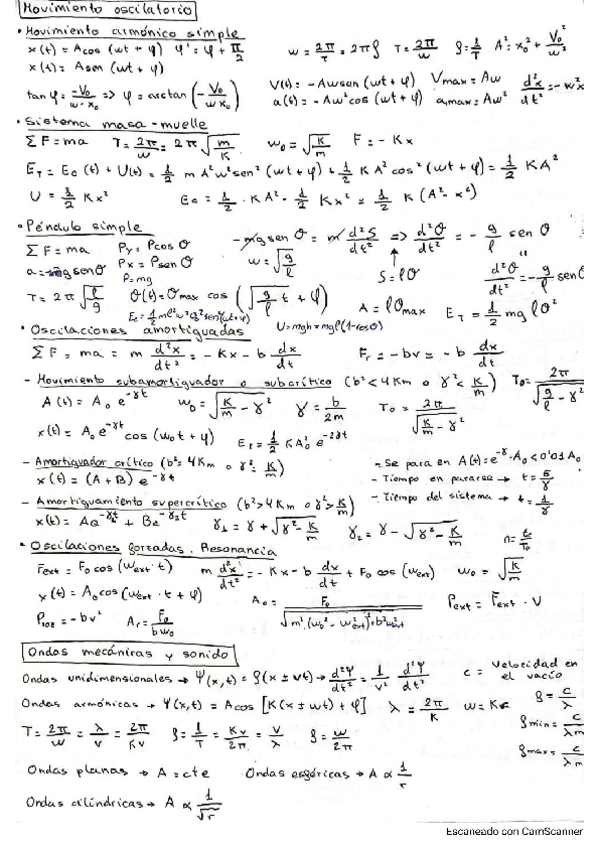 Movimiento oscilatorio
• Movimiento armónico simple
x(t) = A cos (wt + φ) φ' = φ + π/2 w = 2π/T = 2πf T = 2π/w f = 1/T A² = x₀² + V₀²/w²
x(t) = A sen (wt + φ)
tan φ = -V₀/(w·x₀) => φ = arctan (-V₀/(w x₀)) V(t) = -Aw sen (wt + φ) Vmax = Aw d²x/dt² = -w²x
a(t) = -Aw² cos (wt + φ) amax = Aw²
• Sistema masa-muelle
ΣF = ma T = 2π/w = 2π √(m/K) w₀ = √(K/m) F = -Kx
E_T = Ec(t) + U(t) = 1/2 m A² w² sen² (wt + φ) + 1/2 K A² cos² (wt + φ) = 1/2 K A²
U = 1/2 K x² Ec = 1/2 · KA² - 1/2 K x² = 1/2 K (A² - x²)
• Péndulo simple
ΣF = ma Py = P cos θ -mg sen θ = m d²S/dt² => d²θ/dt² = - g/l sen θ
Px = P sen θ w = √(g/l) S = lθ d²θ/dt² = - g/l sen θ
P = mg
T = 2π √(l/g) θ(t) = θmax cos (√(g/l) t + φ) A = lθmax E_T = 1/2 mg lθ²
U = mgh = mgl (1-cos θ)
• Oscilaciones amortiguadas
ΣF = ma = m d²x/dt² = -Kx - b dx/dt Fr = -bv = -b dx/dt
- Movimiento subamortiguador o subcrítico (b² < 4Km o γ² < K/m) T₀ = 2π/√(g/l - γ²)
A(t) = A₀ e^-γt w₀ = √(K/m - γ²) γ = b/2m T₀ = 2π/√(K/m - γ²)
x(t) = A₀ e^-γt cos (w₀t + φ) E_T = 1/2 K A₀² e^-2γt
- Amortiguador crítico (b² = 4Km o γ² = K/m) - Se para en A(t) = e^-γ · A₀ < 0'01 A₀
x(t) = (A + B) e^-γt - Tiempo en pararse → t = 5/γ
- Amortiguamiento supercrítico (b² > 4Km o γ² > K/m) - Tiempo del sistema → t = 1/γ
x(t) = A e^-γ₁t + B e^-γ₂t γ₁ = γ + √(γ² - K/m) γ₂ = γ - √(γ² - K/m)
• Oscilaciones forzadas. Resonancia
Fext = F₀ cos (wext · t) m d²x/dt² = -Kx - b dx/dt + F₀ cos (wext) w₀ = √(K/m)
x(t) = A₀ cos (wext · t + φ) A₀ = F₀/√(m² (w₀² - wext²)² + b² wext²) Pext = Fext · V
= -bv² Ar = F₀/(b w₀)
Ondas mecánicas y sonido
Ondas unidimensionales → Ψ(x,t) = f(x ± vt) → d²Ψ/dt² = 1/v² d²Ψ/dt² c = velocidad en el vacío
Ondas armónicas → Ψ(x,t) = A cos [K(x ± wt) + φ] λ = 2π/K f = c/λ
T = 2π/w = λ/v = 2π/Kv f = 1/T = Kv/2π = v/λ f = w/2π fmin = c/λm
fmax = c/λm
Ondas planas → A = cte Ondas esféricas → A ∝ 1/r
Ondas cilíndricas → A ∝ 1/√r
Escaneado con CamScanner